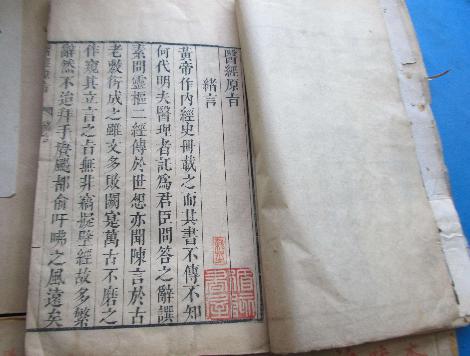 醫經原旨
緒言
黃帝作內經史冊載之而其書不傳不知
何代明夫醫理者託爲君臣問答之辭譔
素問靈樞二經傳於世想亦聞陳言於古
老敷衍成之雖文多敗闕寔萬古不磨之
作窺其立言之旨無非竊擬壁經故多繁
辭然不迨拜手賡颺都俞吁咈之風遠矣
醫經原旨